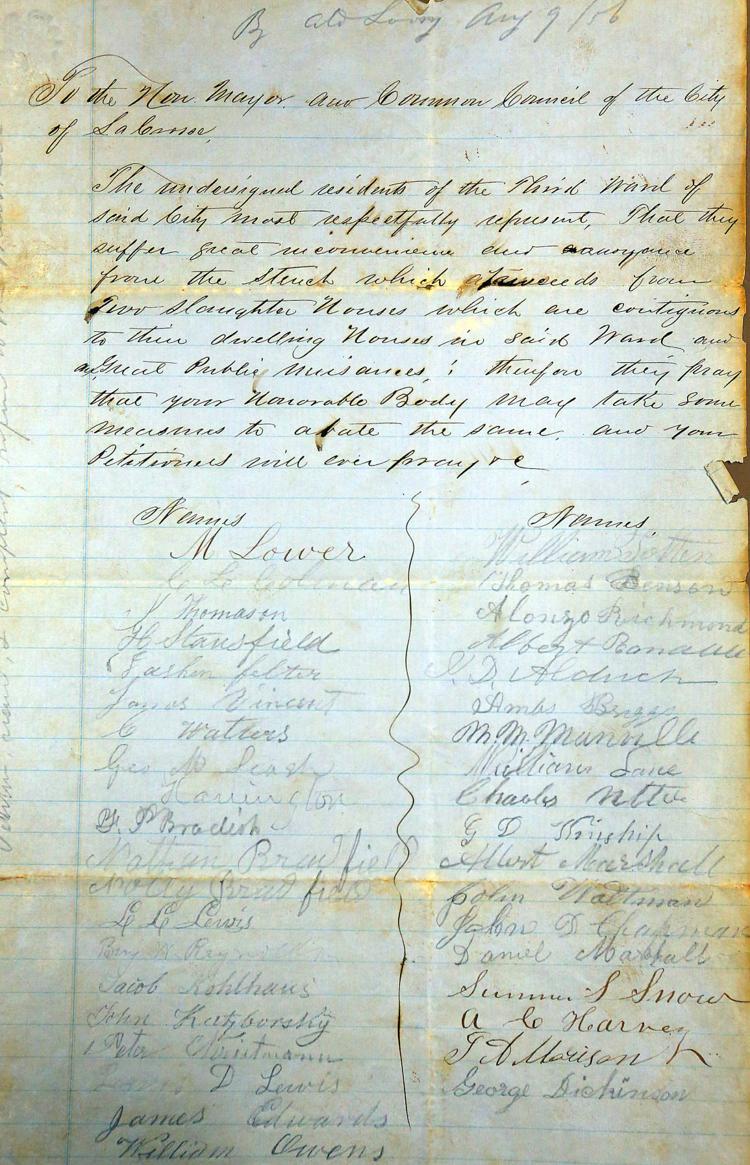 By Ald Aug 9 /56
To the Hon. Mayor and Common Council of the City
of La Crosse,
The undersigned residents of the Third Ward of
said City most respectfully represent, That they
suffer great inconvenience and annoyance
from the stench which from
two slaughter Houses which are contiguous
to their dwelling Houses in said Ward and
as Great Public nuisances; therefore they pray
that your Honorable Body may take some
measures to abate the same, and your
Petitioners will ever pray &c
Names
M Lower
C L Colman
J Thomason
H Stansfield
James Vincent
C Watters
Geo
Harrington
Bradish
Nathan Bradfield
Bradfield
L L Lewis
Jacob Kohlhaus
John Katzborsky
Peter
D Lewis
James Edwards
William Owens
Names
William Totten
Thomas Benson
Alonzo Richmond
Albert
Aldrich
Briggs
M. M. Manville
William Lane
Charles
G D Winship
Albert Marshall
John Waltman
John D Chapman
Daniel
Sumner S Snow
A C Harvey
George Dickinson